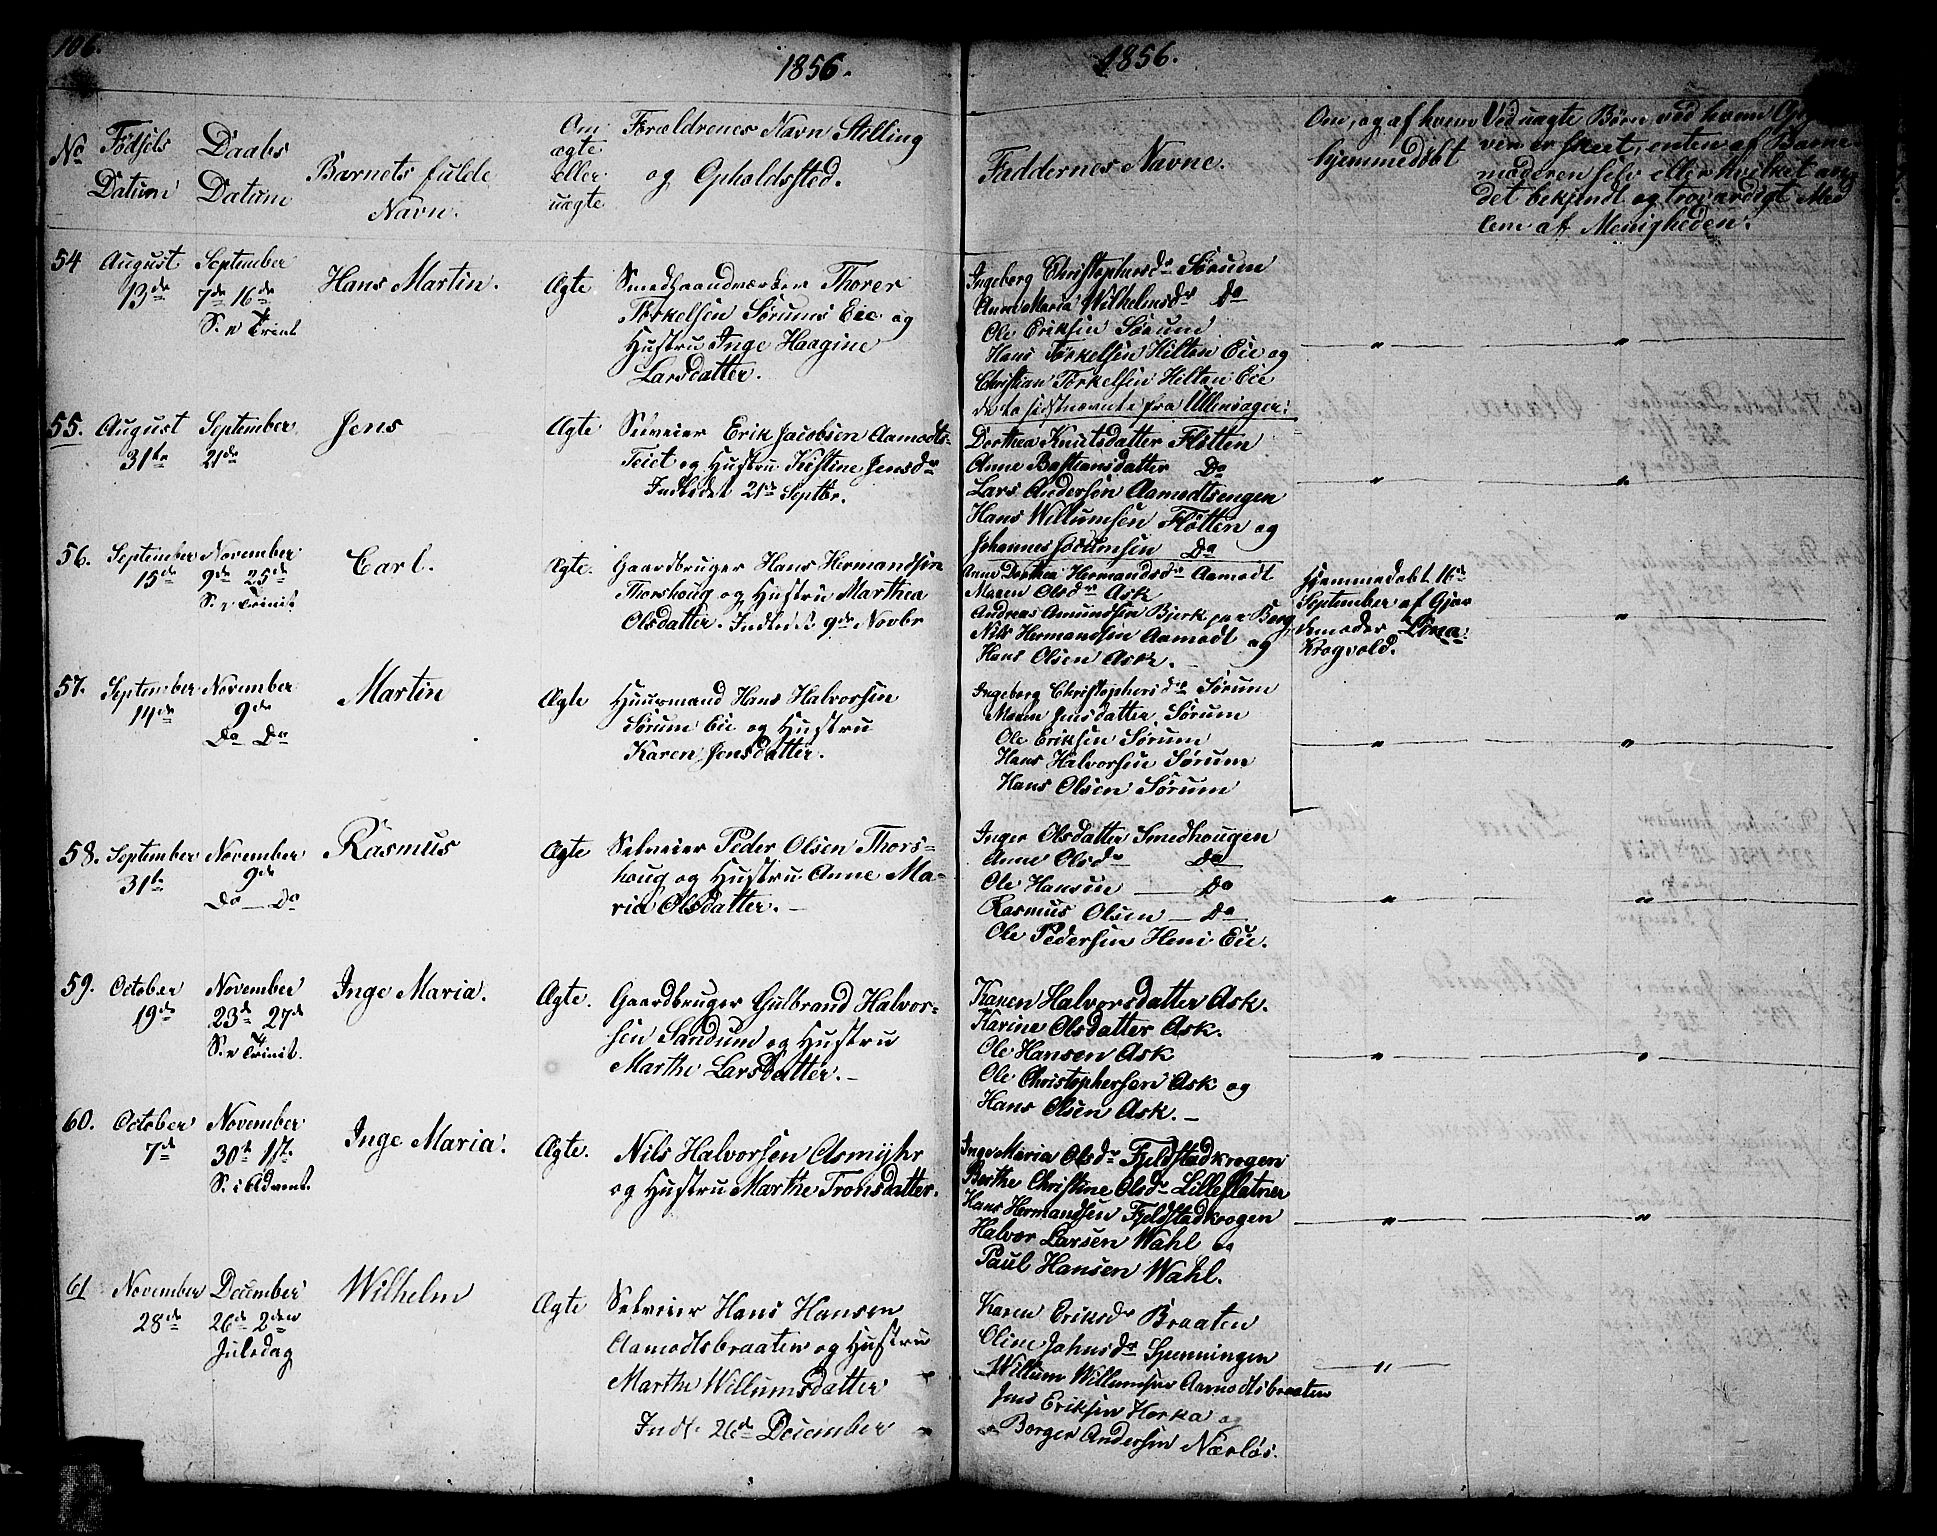 106.
1856.
1856.
No
Fødsels
Datum
Daabs
Datum
Barnets fulde
Navn.
Om
ægte
eller
uægte
Forældrenes Navn Stilling
og Opholdssted.
Faddernes Navne.
Om, og af hvem
hjemmedøbt
Ved uagte Børn, ved hvem
ven er skeet, enten af Barne-
moderen selv eller hvilket an-
det bekjendt og troværdigt Med
lem af Menigheden.
54
August
13de
September
7de 16de
S. e Trint
Hans Martin.
Ægte
Smedhaandværker Thorer
Torkelsen Sørums Eie og
Hustru Inge Haagine
Larsdatter.
Ingeborg Christophersdr Sørum
Anne Maria Wilhelmsdr Do
Ole Eriksen Sørum
Hans Torkelsen Hilton Eie og
Christian Torkelsen Hilton Eie
de to sidstnævnte fra Ullensager.
"
"
55.
August
31te
September
21de
Jens
Ægte
Selveier Erik Jacobsen Aamodts-
Teiet og Hustru Kistine Jensdr
Indledet 21de Septbr.
Dorthea Knutsdatter Fløtten
Anne Bastiansdatter Do
Lars Andersen Aamodtsengen
Hans Willumsen Fløtten og
Johannes Do
"
"
56.
September
15de
November
9de 25de
S. e Trinit
Carl.
Ægte.
Gaardbruger Hans Hermandsen
Thorshoug og Hustru Marthea
Olsdatter. Indledet 9de Novbr
Anne Dorthea Hermandsdr Aamodt
Maren Olsdr Ask
Andreas Amundsen Bjerk paa Berg
Nils Hermandsen Aamodt og
Hans Olsen Ask.
Hjemmedøbt 16de
September af Gjor
demoder Lina
Krogvold.
"
57.
September
14de
November
9de
Do Do
Martin
Ægte
Huusmand Hans Halvorsen
Sørum Eie og Hustru
Karen Jensdatter.
Ingeborg Christophersdr Sørum
Maren Jensdatter Sørum
Ole Eriksen Sørum
Hans Halvorsen Sørum
Hans Olsen Sørum
"
"
58.
September
31te
November
9de
Do Do
Rasmus
Ægte
Selveier Peder Olsen Thors-
houg og Hustru Anne Ma-
ria Olsdatter.
Inger Olsdatter Smedhougen
Anne Olsdr Do
Ole Hansen Do
Rasmus Olsen Do
Ole Pedersen Heni Eie.
"
"
59.
October
19de
November
23de 27de
S. e Trinit.
Inge Maria.
Ægte.
Gaardbruger Gulbrand Halvor-
sen Sandum og Hustru
Marthe Larsdatter.
Karen Halvorsdatter Ask.
Karine Olsdatter Ask.
Ole Hansen Ask
Ole Christophersen Ask og
Hans Olsen Ask.
"
"
60.
October
7de
November
30te 1ste
S. i Advent.
Inge Maria.
Ægte.
Nils Halvorsen Asmyhr
og Hustru Marthe Tronsdatter.
Inge Maria Olsdr Fjeldstadkrogen
Berthe Christine Olsdr Lilleflatner
Hans Hermandsen Fjeldstadkrogen
Halvor Larsen Wahl og
Paul Hansen Wahl.
"
"
61
November
28de
December
26de 2den
Juledag
Wilhelm
Ægte
Selveier Hans Hansen
Aamodtsbraaten og Hustru
Marthe Willumsdatter
Indl. 26de December
Karen Eriksdr Braaten
Oline Johnsdr Spenningen
Willum Willumsen Aamodtsbraaten
Jens Eriksen Horka og
Borger Andersen Nærløs.
"